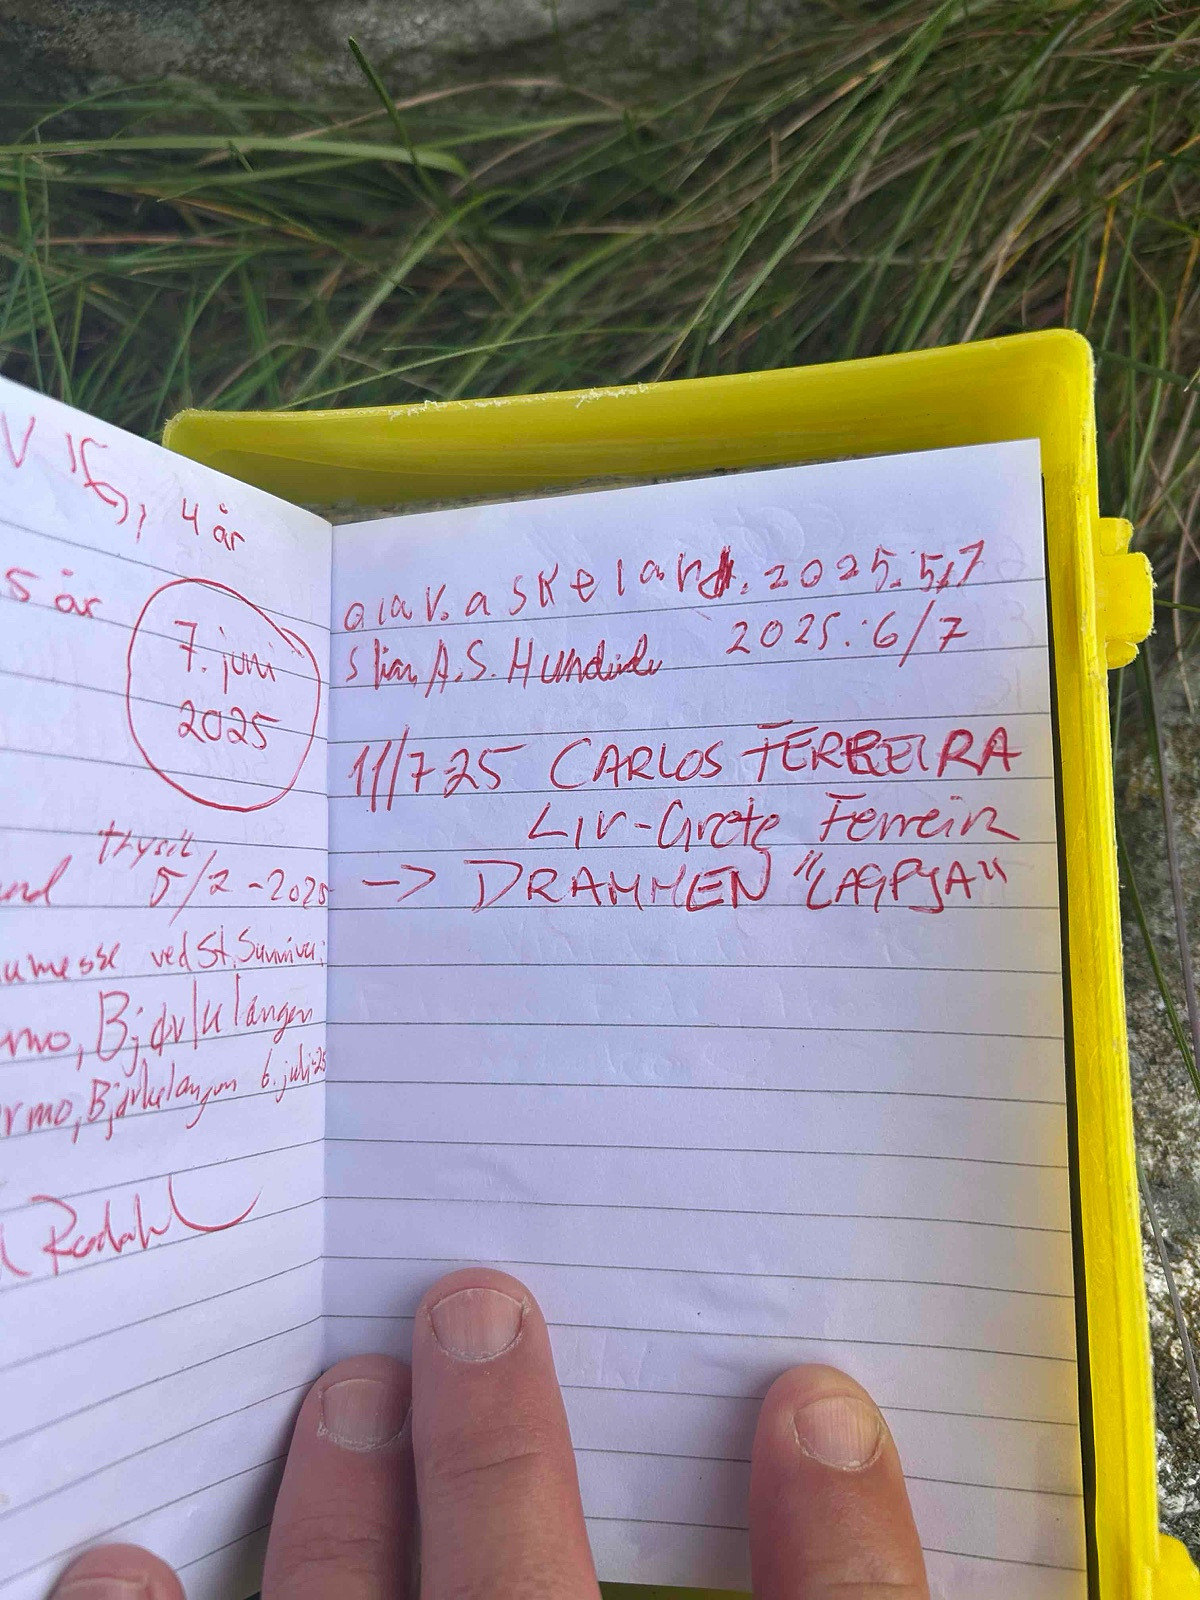 4 år
5 år
7. juni
2025
5/7-2025
umesse ved St. Sunniva
mo, Bjørkelangen
rmo, Bjørkelangen 6. juli-25
Rodahl
olav. askeland. 2025.5.7
A.S. 2025.6/7
11/7-25 CARLOS FERREIRA
Liv-Grete Ferreira
-> DRAMMEN